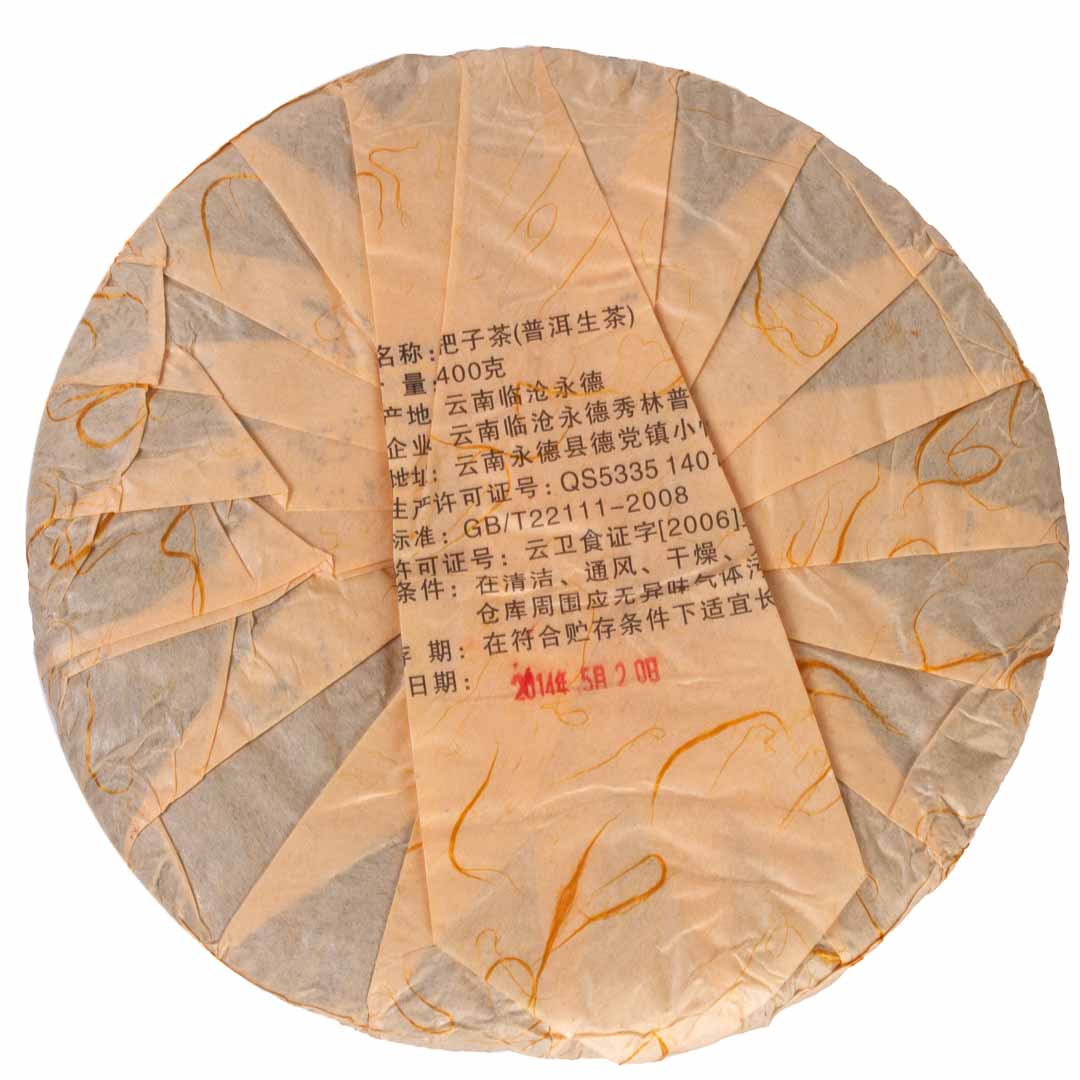 名称：把子茶(普洱生茶)
量：400克
产地 云南临沧永德
企业 云南临沧永德秀林普
地址：云南永德县德党镇小
生产许可证号：QS5335 1401
标准：GB/T22111-2008
许可证号：云卫食证字[2006]
条件：在清洁、通风、干燥、
仓库周围应无异味气体
存 期：在符合贮存条件下适宜长
日期：2014年 5月20日